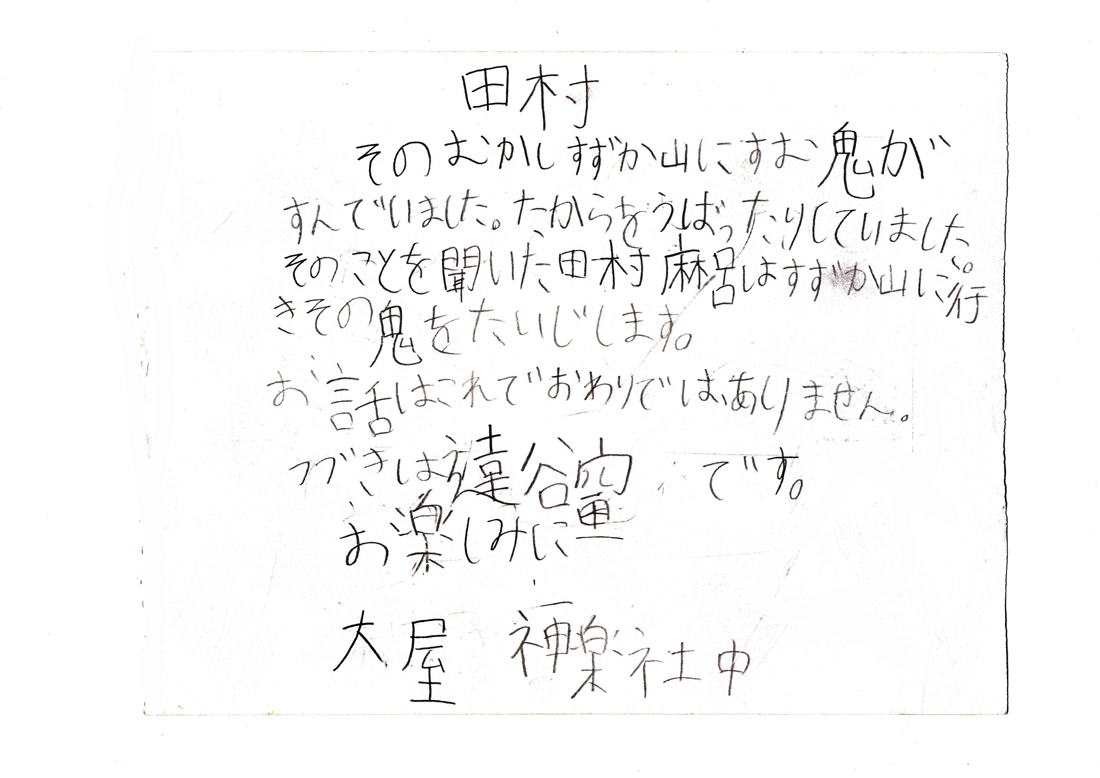 田村
そのむかしすずか山にすむ鬼が
すんでいました。たからをうばったりしていました。
そのことを聞いた田村麻呂はすずか山に行
きその鬼をたいじします。
お話はこれでおわりではありません。
つづきは達谷窟です。
お楽しみに
大屋 神楽社中